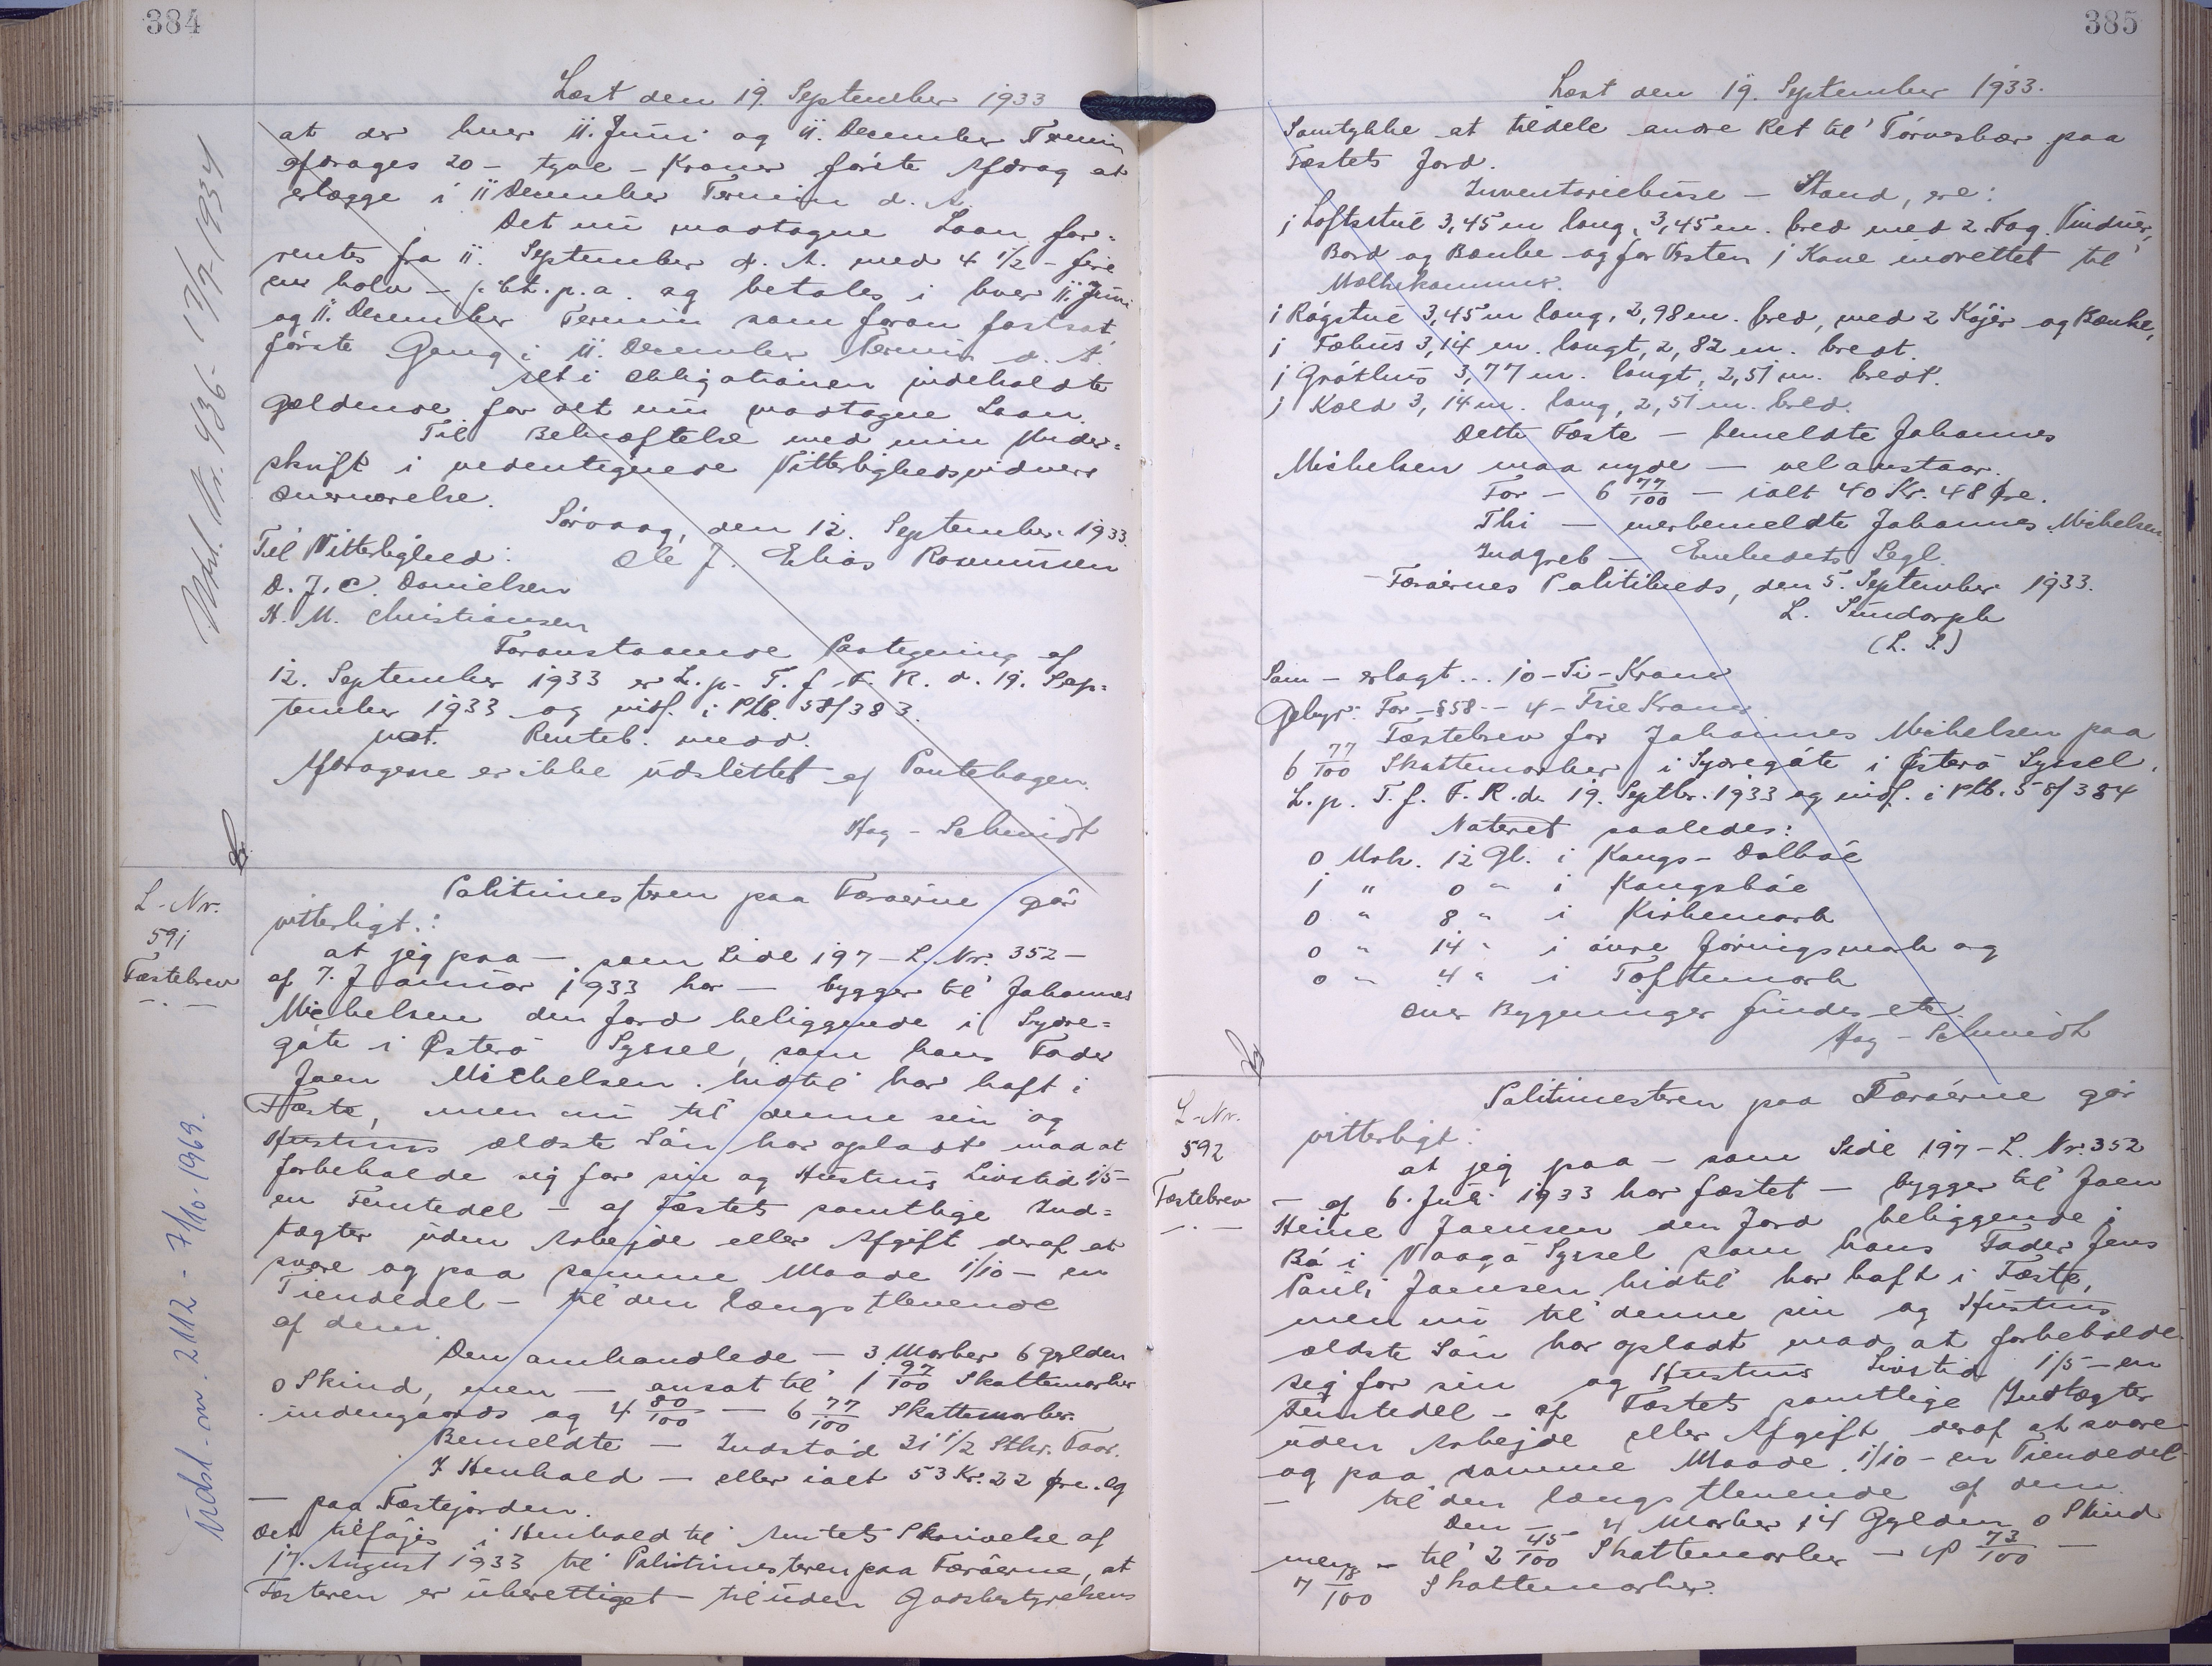 384
Læst den 19. September 1933
at der hver 11. Juni og 11. December Termin
afdrages 20 - tyve - Kroner første Afdrag at
erlægge i 11 December Termin d. A.
Det nu modtagne Laan for=
rentes fra 11. September d. A. med 4 1/2 - fire
en halv - pCt. p.a. og betales i hver 11. Juni
og 11. December Termin som foran fastsat
første Gang i 11. December Termin d. A.
Alt i Obligationen indeholdte
gældende for det nu modtagne Laan.
Til Bekræftelse med min Under=
skrift i vedentegnede Vitterlighedsvidners
Overværelse.
Sørvaag, den 12. September 1933.
Til Vitterlighed: Ole J. Elias Rasmussen
D. J. C. Danielsen
H. M. Christiansen
Foranstaaende Paategning af
12. September 1933 er L. p. T. f. F. R. d. 19. Sep=
tember 1933 og indf. i Ptb. 58/383.
mot. Renteb. medd.
Afdragene er ikke udslettet af Pantebogen.
Hag-Schmidt
Udsl. Nr. 936 - 1934
L-Nr.
591
Fæstebrev
Politimesteren paa Færøerne gør
vitterligt:
at jeg paa - som Side 197 - L. Nr. 352 -
af 7. Januar 1933 har - bygger til Johannes
Michelsen den Jord beliggende i Sydre=
gøte i Østerø Syssel, som hans Fader
Joen Michelsen hidtil har haft i
Fæste, men nu til denne sin og
Hustrus ældste Søn har opladt mod at
forbeholde sig for sin og Hustrus Livstid 1/5 -
en Femtedel - af Fæstets samtlige Ind=
tægter uden Arbejde eller Afgift deraf at
svare og paa samme Maade 1/10 - en
Tiendedel - til den længstlevende
af dem.
Den omhandlede - 3 Marker 6 Gylden
0 Skind, men - ansat til 1 97/100 Skattemarker
indengaards og 4 80/100 - 6 77/100 Skattemarker.
Bemeldte - Indstød 31 1/2 Stkr. Faar.
I Henhold - eller ialt 53 Kr. 22 Øre. og
- paa Fæstejorden.
Det tilføjes i Henhold til Amtets Skrivelse af
17. August 1933 til Politimesteren paa Færøerne, at
Fæsteren er uberettiget - til uden Godsbestyrelsens
Udsl. - Nr. 2112 - 7/10-1969.
385
Læst den 19. September 1933.
Samtykke at tildele andre Ret til Tørveskær paa
Fæstets Jord.
Inventariehuse - Stand, ere:
1 Loftsstue 3,45 m lang, 3,45 m. bred med 2 Fag Vinduer,
Bord og Bænke og for Vesten 1 Kove indrettet til
Mælkekammer.
1 Røgstue 3,45 m lang, 2,98 m. bred, med 2 Køjer og Bænke,
1 Fæhus 3,14 m. langt, 2,82 m. bredt.
1 Gróthus 3,77 m. langt, 2,51 m. bredt.
1 Kæld 3,14 m. lang, 2,51 m. bred.
Dette Fæste - bemeldte Johannes
Michelsen maa nyde - vel anstaar.
For - 6 77/100 - ialt 40 Kr. 48 Øre.
Thi - merbemeldte Johannes Michelsen
Indgreb - Embedets Segl.
Færøernes Politikreds, den 5. September 1933.
L. Sundorph
(L. S.)
Som - erlagt... 10 - Ti - Kroner
Gebyr: For - §58 - 4 - Fire Kroner.
Fæstebrev for Johannes Michelsen paa
6 77/100 Skattemarker i Sydregøte i Østerø Syssel.
L. p. T. f. F. R. d. 19. Septbr. 1933 og indf. i Ptb. 58/384
Noteret saaledes:
0 Mrk. 12 Gl. i Kongs-Dalbøe
1 " 0 " i Kongsbøe
0 " 8 " i Kirkemark
0 " 14 " i øvre Jørningsmark og
0 " 4 " i Toftemark
Over Bygninger findes etc.
Hag-Schmidt
L-Nr.
592
Fæstebrev
Politimesteren paa Færøerne gør
vitterligt:
at jeg paa - som Side 197 - L. Nr. 352
- af 6. Juli 1933 har fæstet - bygger til Joen
Heine Joensen den Jord beliggende i
Bø i Vaagø Syssel som hans Fader Jens
Pauli Joensen hidtil har haft i Fæste,
men nu til denne sin og Hustrus
ældste Søn har opladt mod at forbeholde
sig for sin og Hustrus Livstid 1/5 - en
Femtedel - af Fæstets samtlige Indtægter
uden Arbejde eller Afgift deraf at svare
og paa samme Maade 1/10 - en Tiendedel
- til den længstlevende af dem.
Den - 4 Marker 14 Gylden 0 Skind
men - til 2 45/100 Skattemarker - 73/100 -
7 18/100 Skattemarker.